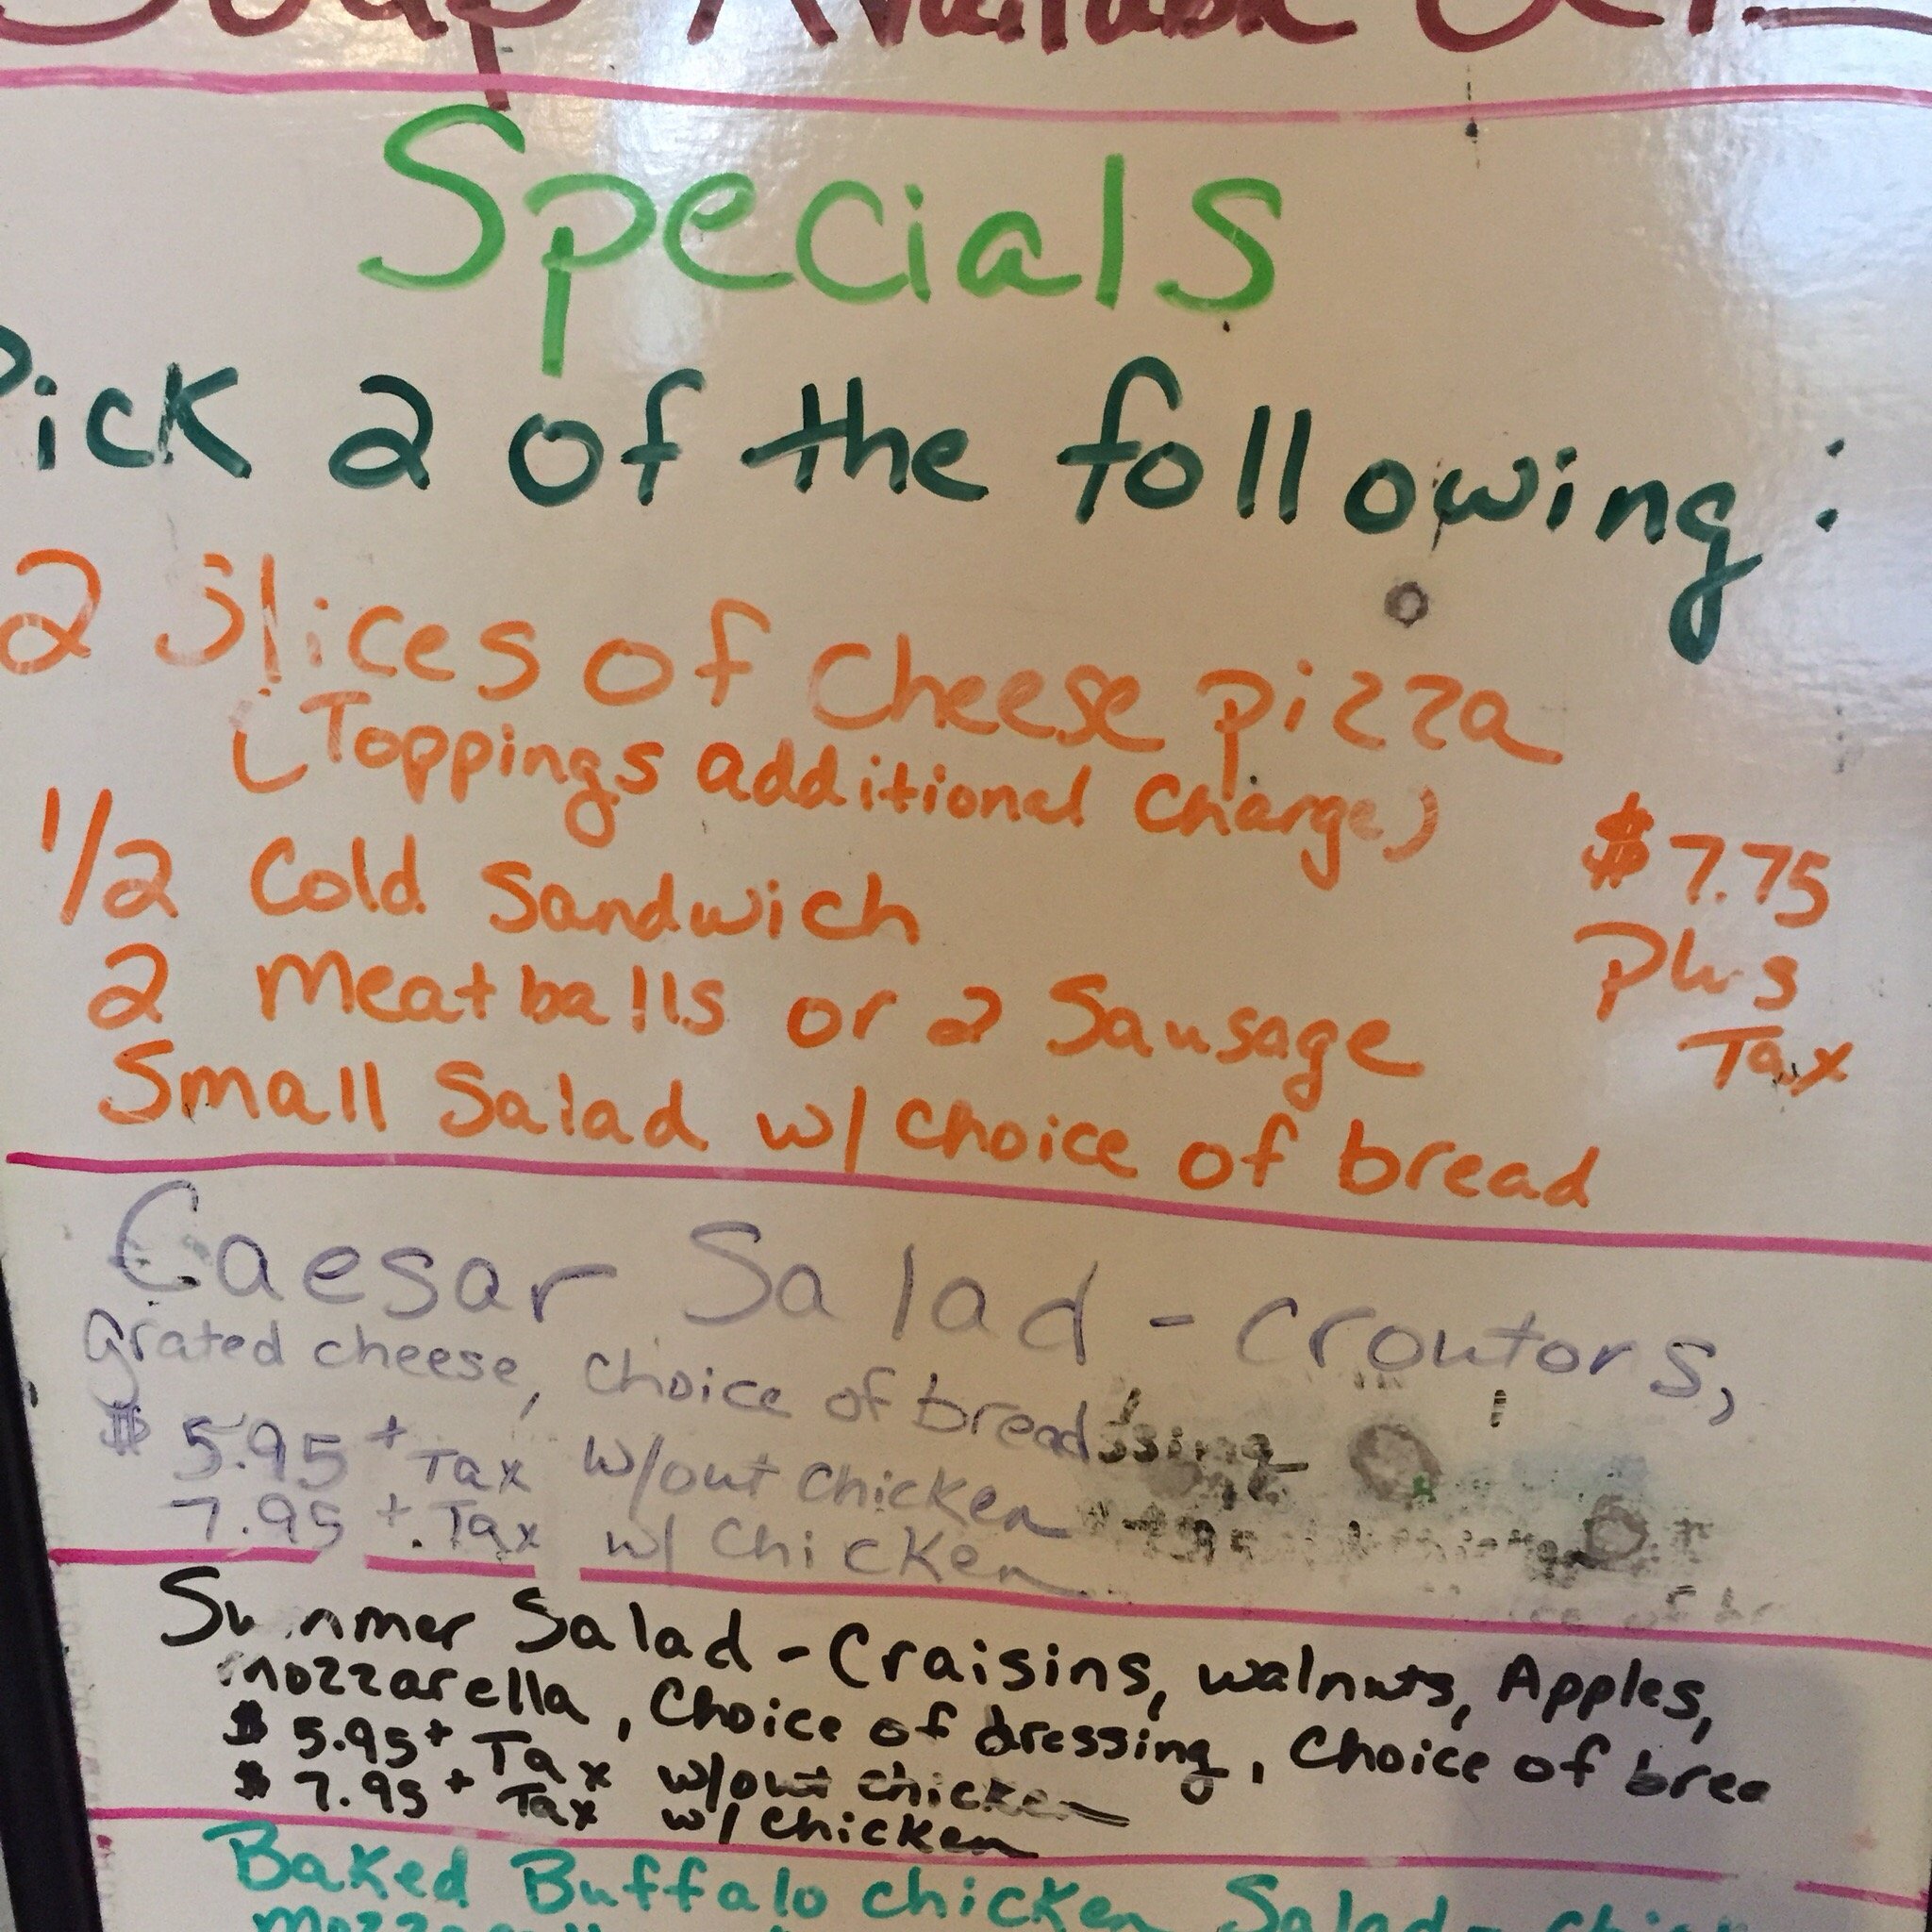 Soup Available
Specials
Pick 2 of the following:
2 Slices of Cheese pizza
(Toppings additional Charge)
1/2 Cold Sandwich
$7.75
2 Meatballs or 2 Sausage
Plus
Tax
Small Salad w/ choice of bread
Caesar Salad - Croutors,
Grated cheese, Choice of bread
$ 5.95 + Tax w/out chicken
7.95 + Tax w/ Chicken
Summer Salad - Craisins, walnuts, Apples,
mozzarella, Choice of dressing, Choice of brea
$ 5.95 + Tax w/out chicken
$ 7.95 + Tax w/ Chicken
Baked Buffalo chicken Salad -